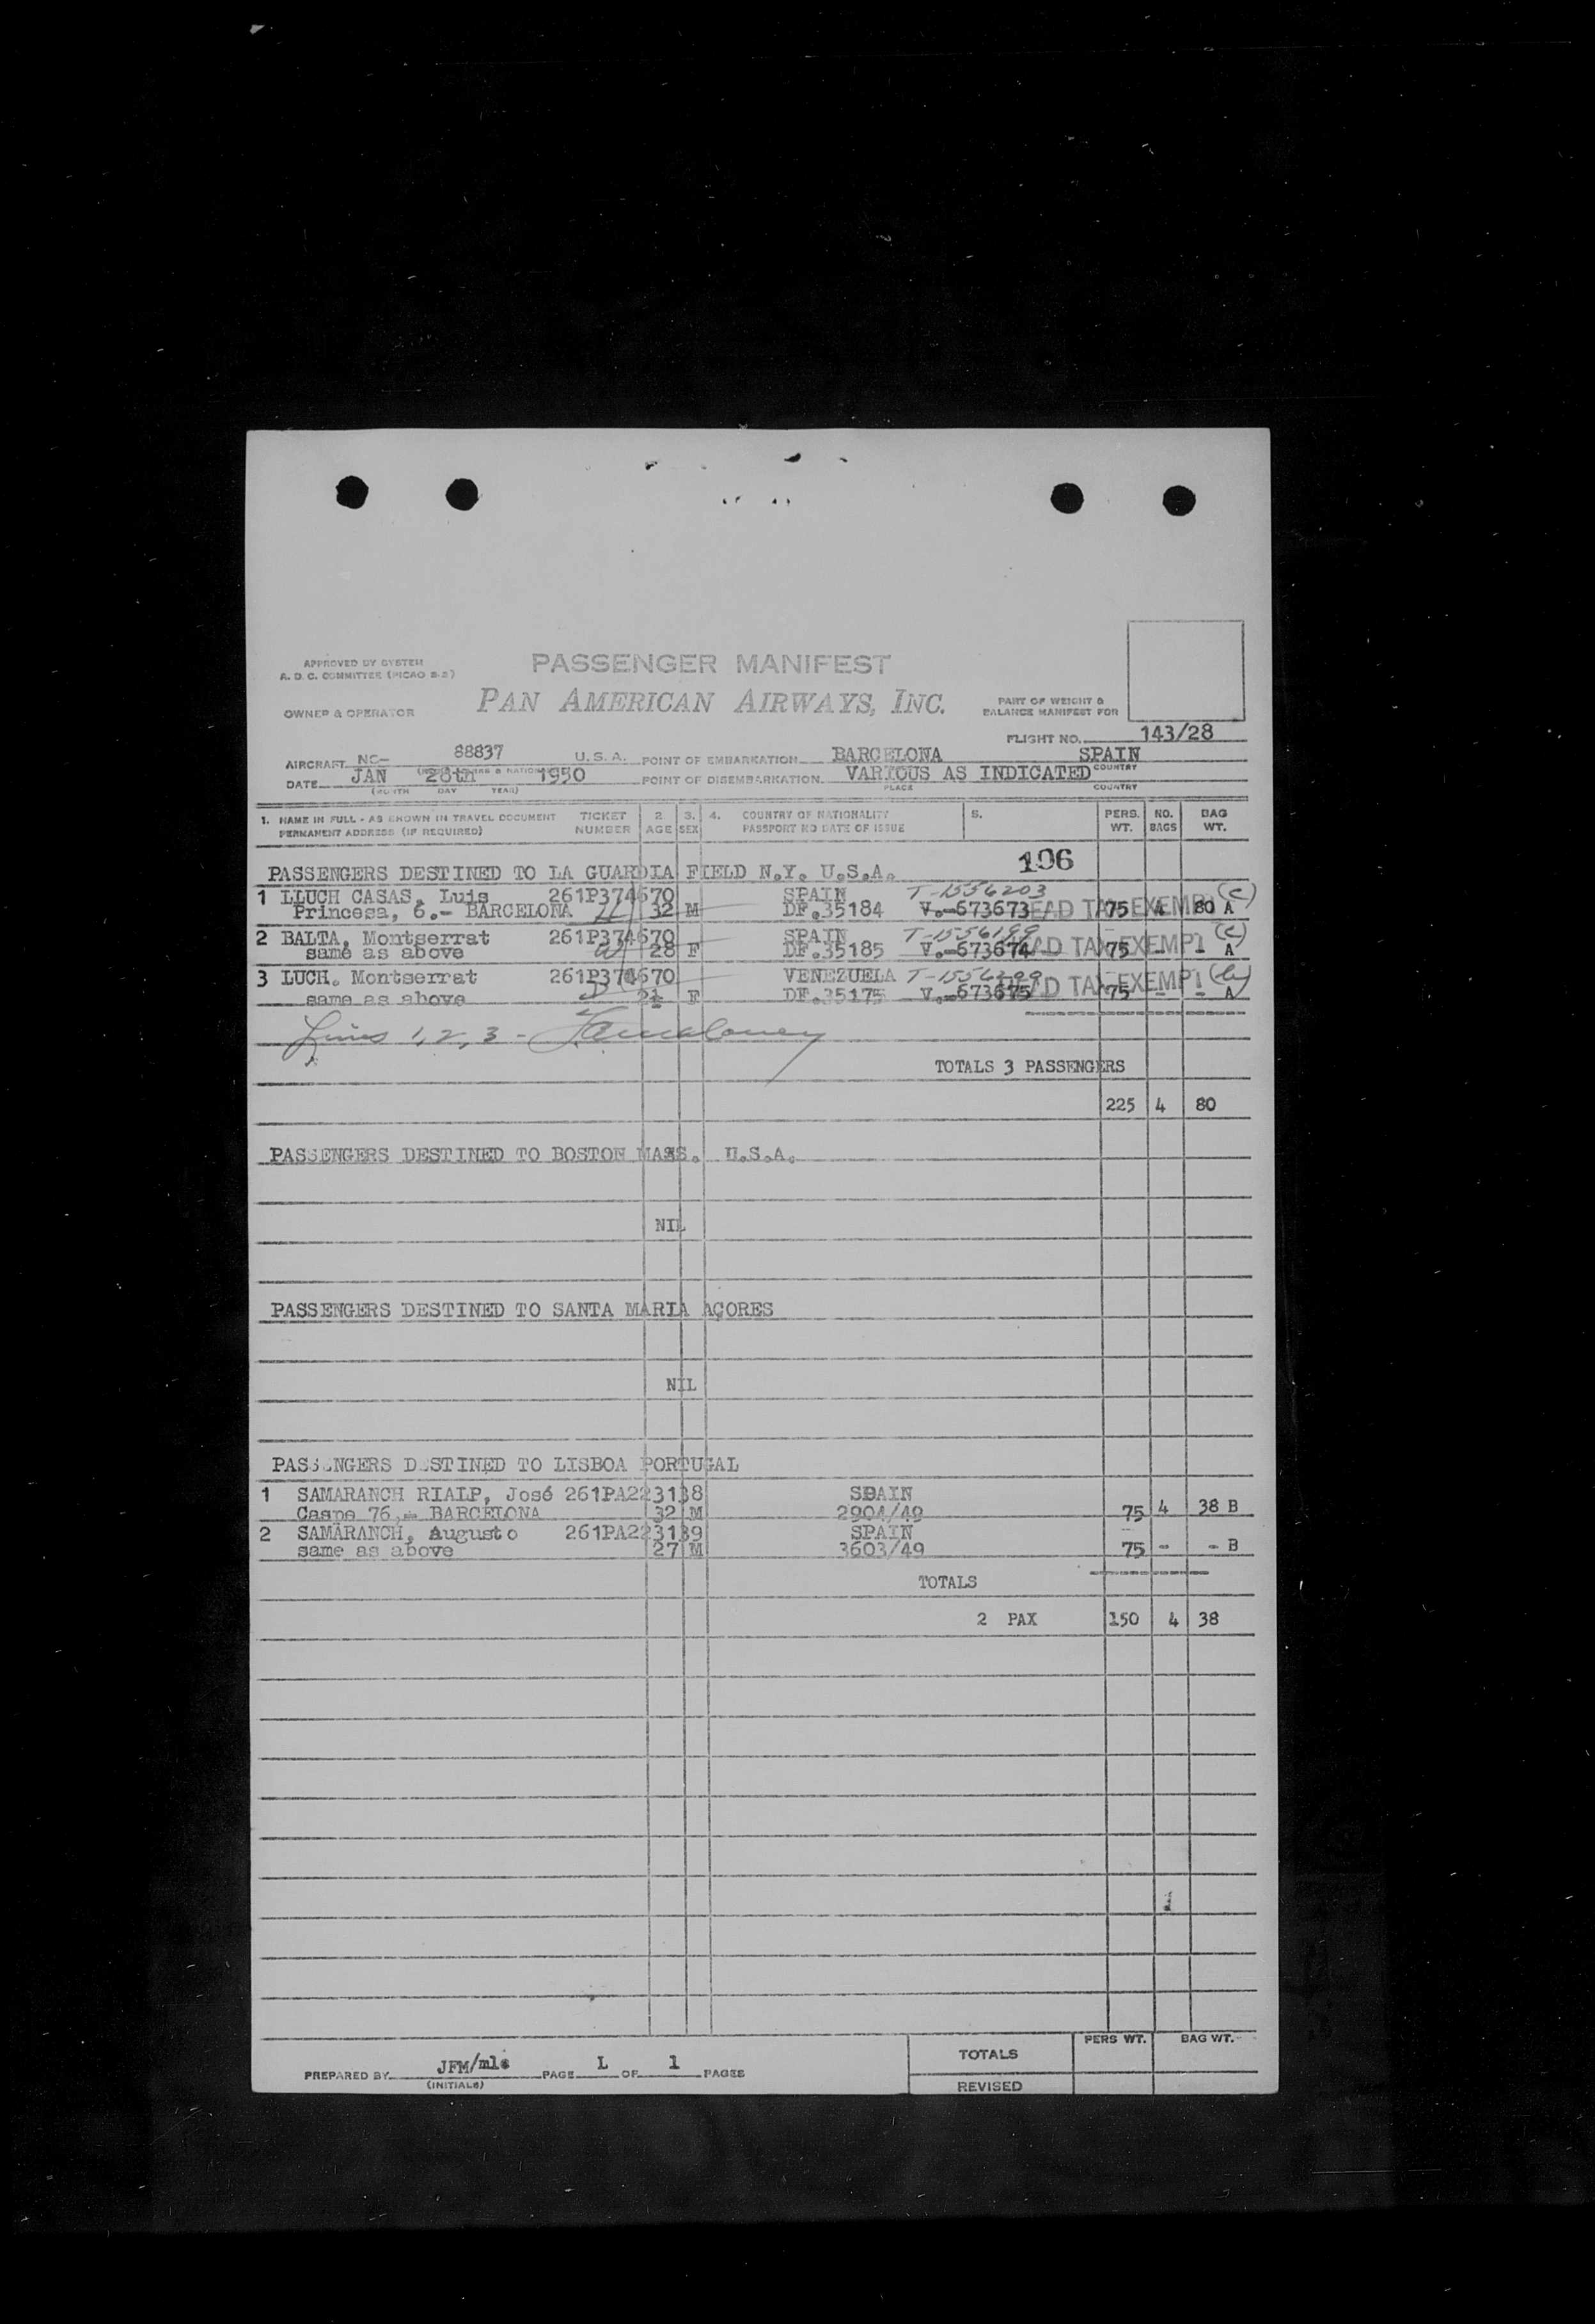 APPROVED BY SYSTEM
A. D. C. COMMITTEE (PICAO S-2)
PASSENGER MANIFEST
PAN AMERICAN AIRWAYS, INC.
OWNER & OPERATOR
PART OF WEIGHT &
BALANCE MANIFEST FOR
FLIGHT NO. 143/28
AIRCRAFT NC- 88837 U.S.A. POINT OF EMBARKATION BARCELONA SPAIN
DATE JAN 28th 1950 POINT OF DISEMBARKATION VARIOUS AS INDICATED COUNTRY
(MONTH DAY YEAR) PLACE COUNTRY
1. NAME IN FULL - AS SHOWN IN TRAVEL DOCUMENT TICKET 2. 3. 4. COUNTRY OF NATIONALITY 5. PERS. NO. BAG
PERMANENT ADDRESS (IF REQUIRED) NUMBER AGE SEX PASSPORT NO DATE OF ISSUE WT. BAGS WT.
106
PASSENGERS DESTINED TO LA GUARDIA FIELD N.Y. U.S.A.
1 LLUCH CASAS, Luis 261P374670 SPAIN T-1556203
Princesa, 6.- BARCELONA 32 M DF.35184 V.-673673 HEAD TAX EXEMPT (c) 75 4 80 A
2 BALTA, Montserrat 261P374670 SPAIN T-1556199
same as above W 28 F DF.35185 V.-673674 HEAD TAX EXEMPT (c) 75 - - A
3 LUCH. Montserrat 261P374670 VENEZUELA
same as above F DF.35175 V.-673675 HEAD TAX EXEMPT 75 - - A
Lines 1, 2, 3 -
TOTALS 3 PASSENGERS
225 4 80
PASSENGERS DESTINED TO BOSTON MASS. U.S.A.
NIL
PASSENGERS DESTINED TO SANTA MARIA AÇORES
NIL
PASSENGERS DESTINED TO LISBOA PORTUGAL
1 SAMARANCH RIALP, José 261PA223138 SPAIN
Caspe 76,- BARCELONA 32 M 2904/49 75 4 38 B
2 SAMARANCH, Augusto 261PA223139 SPAIN
same as above 27 M 3603/49 75 - - B
TOTALS
2 PAX 150 4 38
PERS WT. BAG WT.
TOTALS
PREPARED BY JFM/mls PAGE 1 OF 1 PAGES
(INITIALS)
REVISED